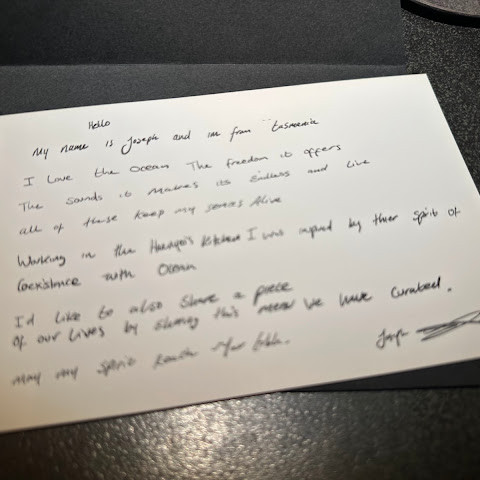 Hello
My name is Joseph and im from Tasmania
I Love the Ocean The freedom it offers
The sounds it makes its Endless and Live
all of these keep my senses Alive
Working in the kitchen I was inspired by their spirit of
Coexistence with Ocean
I'd like to also share a piece
of our Lives by sharing this menu we have curated.
may my spirit reach your table.